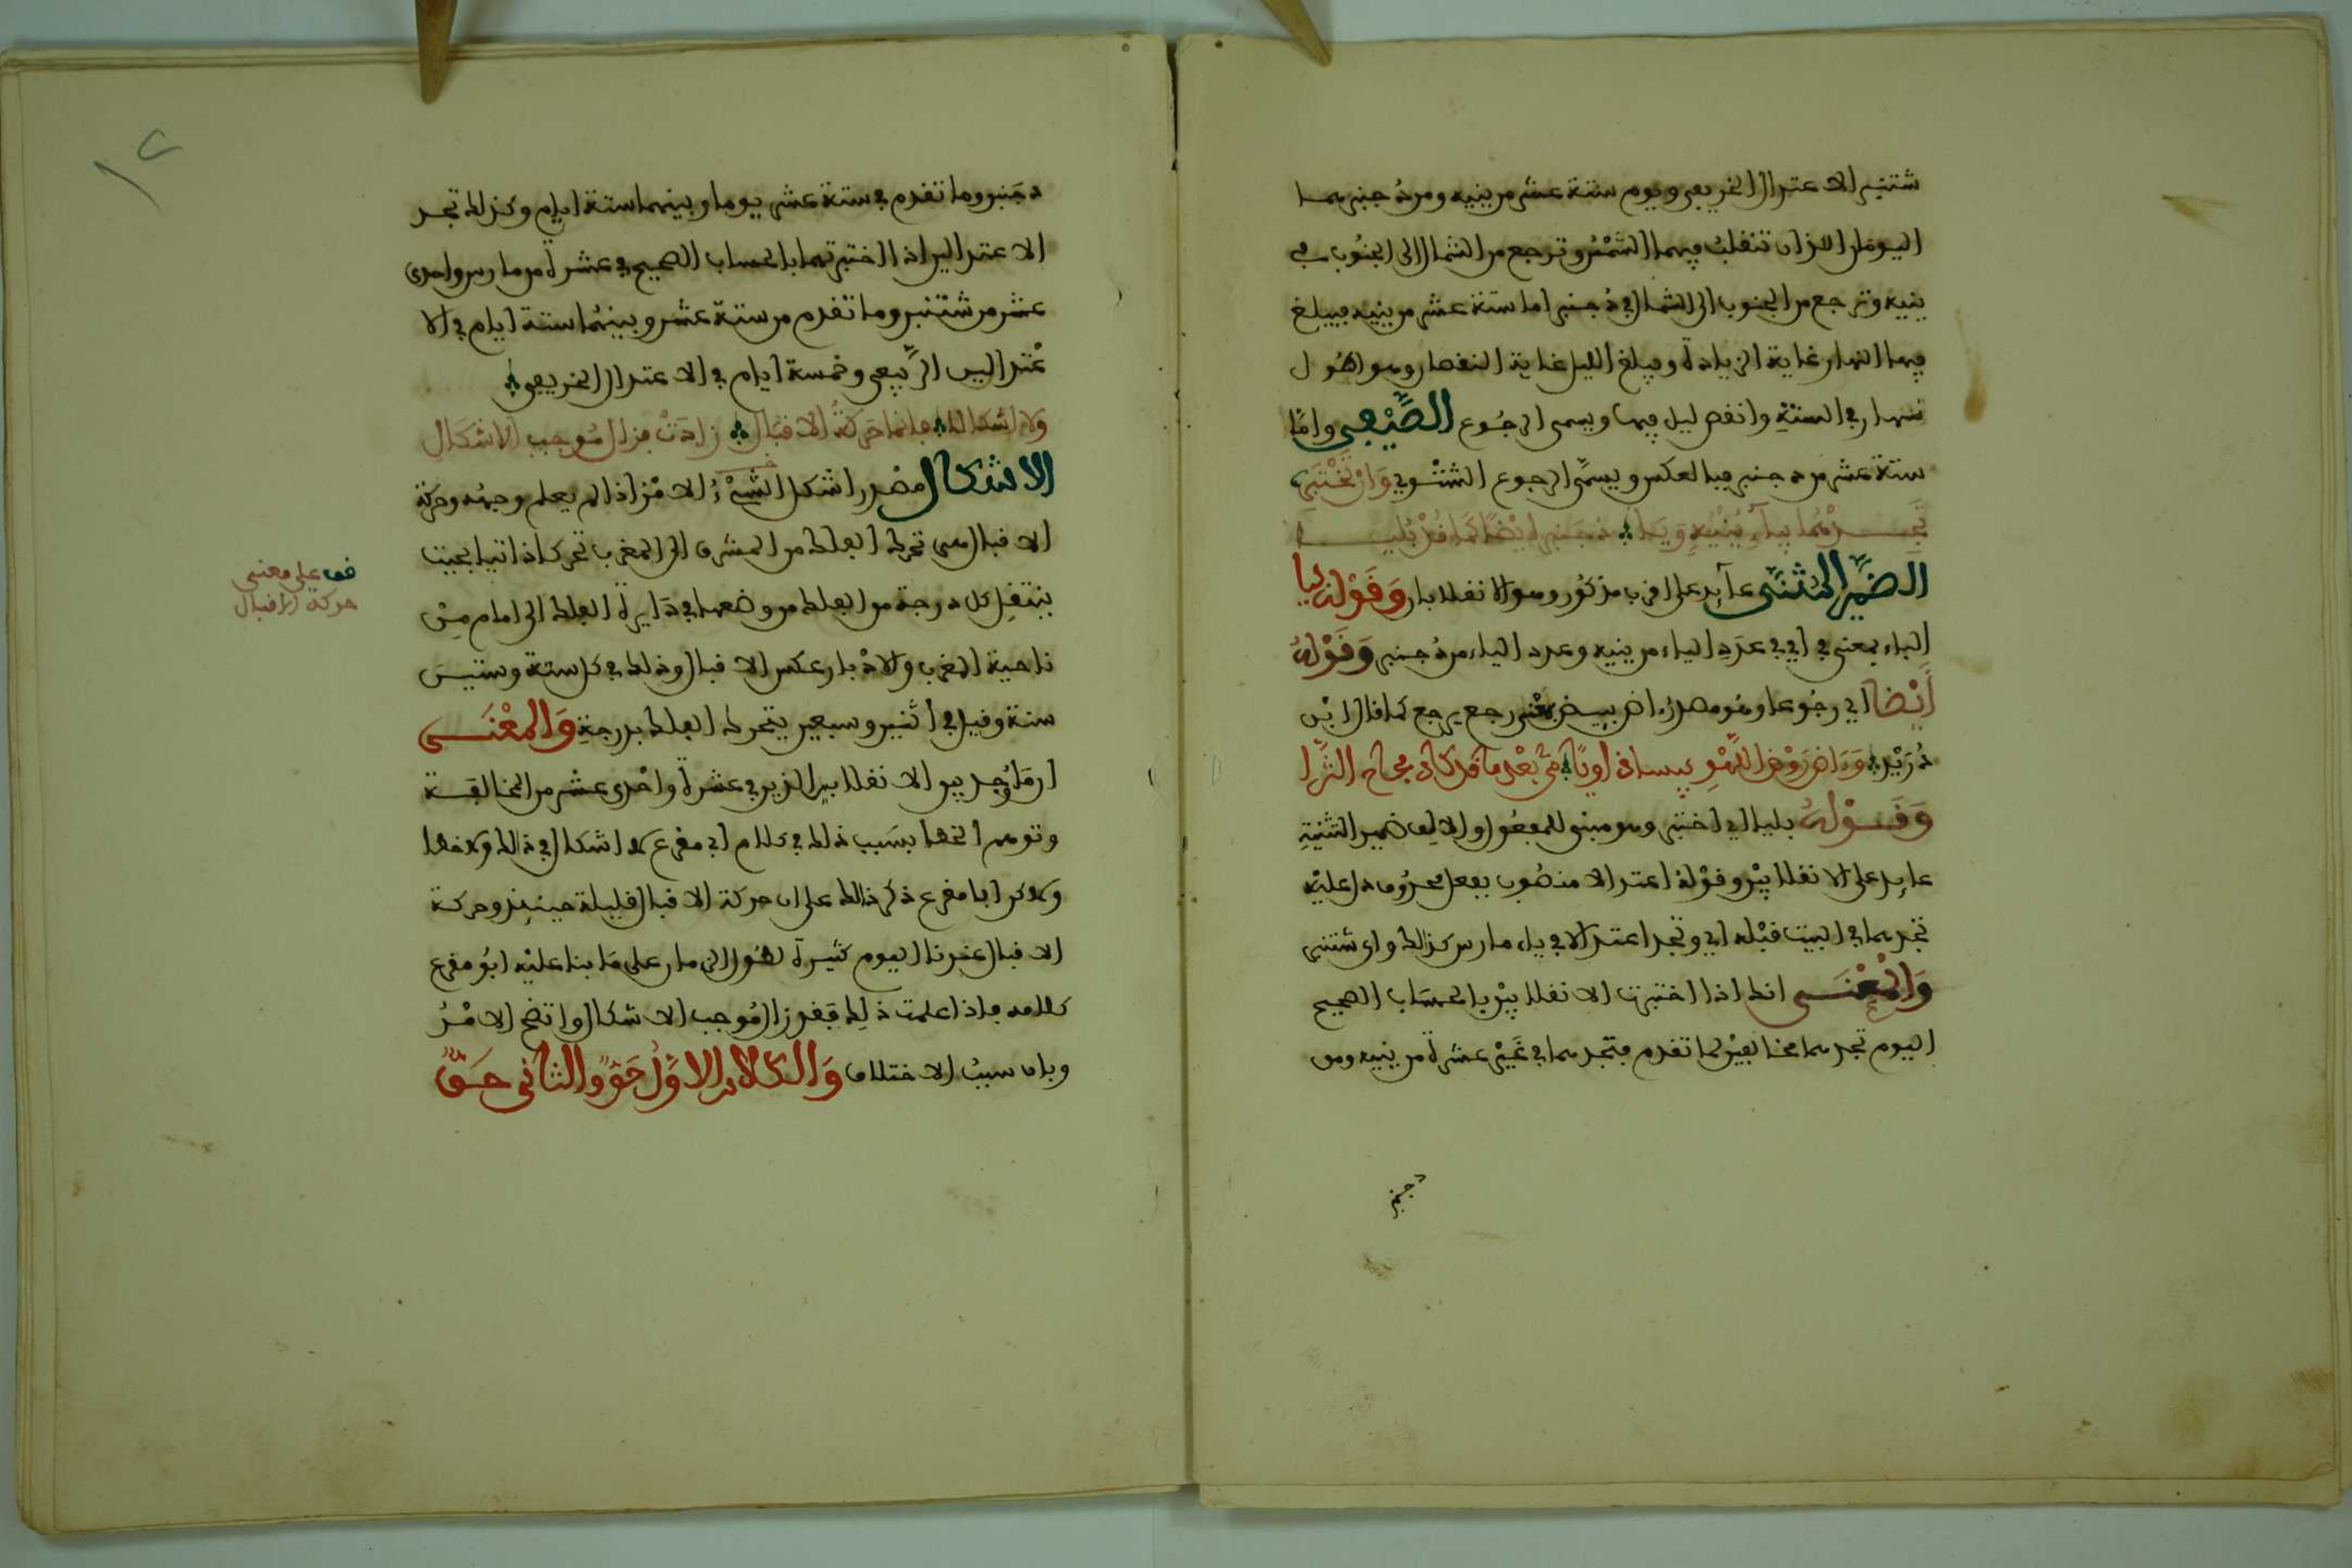 شتنبر الاعتدال الخريفي ويوم ستة عشر من ينيه ومن دجنبر هما
اليومان اللذان تنقلب فيهما الشمس وترجع من الشمال الى الجنوب في
ينيه وترجع من الجنوب الى الشمال في دجنبر اما ستة عشر من ينيه فيبلغ
فيها النهار غاية الزيادة ويبلغ الليل غاية النقصان وهو اطول
نهار في السنة وانقص ليل فيها ويسمى الرجوع الصيفي واما
ستة عشر من دجنبر فبالعكس ويسمى الرجوع الشتوي وان تختبر
تجدهما بياء ينيه ويا دجنبر ايضا كما قد بليا
الضمير المثنى عائد على اقرب مذكور وهو الانقلابان وقوله بيا
الباء بمعنى في اي في عدد الياء من ينيه وعدد الياء من دجنبر وقوله
ايضا اي رجوعا وهو مصدر اض ييض بمعنى رجع يرجع كما قال ابن
دريد وءاض روض اللهو يبسا ذاويا من بعد ما قد كان مجاج الثرا
وقوله بليا اي اختبر وهو مبني للمفعول والالف ضمير التثنية
عايد على الانقلابين وقوله اعتدالا منصوب بفعل محذوف دل عليه
تجدهما في البيت قبله اي وتجد اعتدالا في ياء مارس كذلك واى شتنبر
والمعنى انك اذا اختبرت الانقلابين بالحساب الصحيح
اليوم تجدهما مخالفين لما تقدم فتجدهما في عشرة من ينيه ومن
دجنبر
دجنبر وما تقدم في ستة عشر يوما وبينهما ستة ايام وكذلك تجد
الاعتدالين اذا اختبرتهما بالحساب الصحيح في عشرة من مارس واحدى
عشر من شتنبر وما تقدم من ستة عشر وبينهما ستة ايام في الا
عتدالين الربيعي وخمسة ايام في الاعتدال الخريفي
ولا اشكال فانما حركة الاقبال زادت فزال موجب الاشكال
الاشكال مصدر اشكل الشيء الامر اذا لم يعلم وجهه وحركة
الاقبال هي تحرك الفلك من المشرق الى المغرب تحركا ذاتيا بحيث
ينتقل كل درجة من الفلك من وضعها في دايرة الفلك الى امام من
ناحية المغرب والادبار عكس الاقبال وذلك في كل ستة وستين
سنة وقيل في اثنين وسبعين يتحرك الفلك بدرجة والمعنى
ان ما وجد بين الانقلابين الذين في عشرة واحدى عشر من المخالفة
وتوهم الخطا بسبب ذلك في كلام ابي مقرع لا اشكال في ذلك ولا خطا
ولاكن ابا مقرع ذكر ذالك على ان حركة الاقبال قليلة حينئذ وحركة
الاقبال عندنا اليوم كثيرة لطول الزمان على ما بنا عليه ابو مقرع
كلامه فاذا علمت ذلك فقد زال موجب الاشكال واتضح الامر
وبان سبب الاختلاف والكلام الاول حق والثاني حق
قف على معنى
حركة الاقبال
١٢